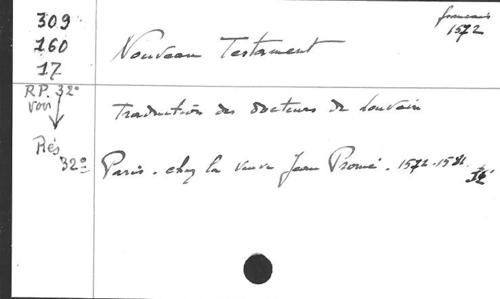 309
160
17
R.P. 32°
voir
Rés
32°
français
1572
Nouveau Testament
Traduction des docteurs de Louvain
Paris. chez la veuve Jean Promé. 1572-1581.